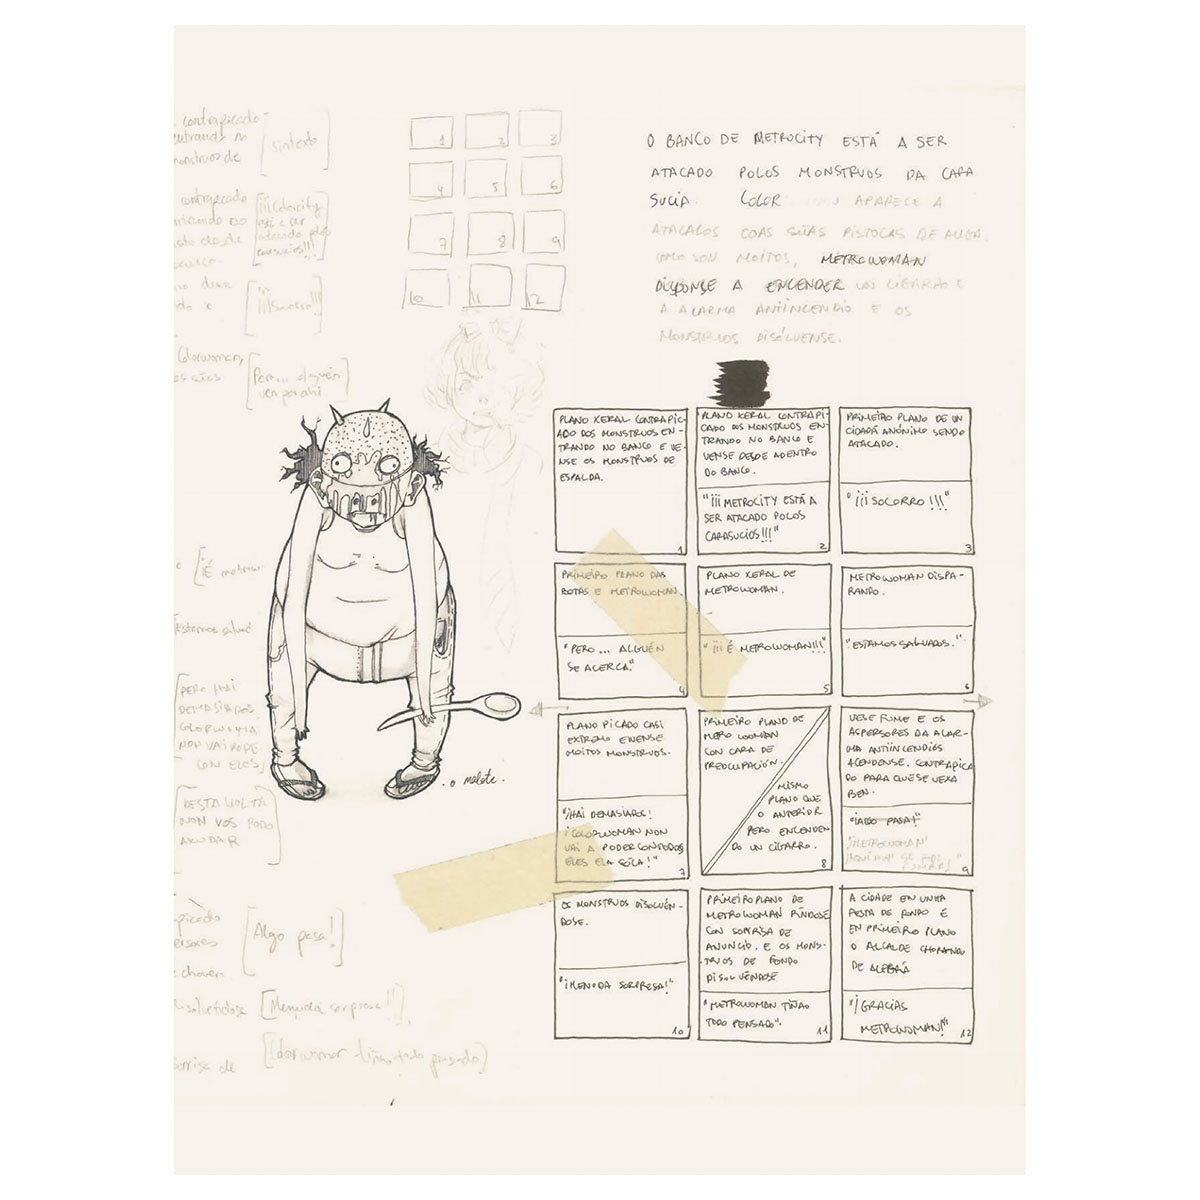 contrapicado
entrando n
monstruos de
[sintexto]
contrapicado
entrando do
[¡¡¡Colorcity
está a ser
atacado polos
carasucios!!!]
[¡¡¡Socorro!!!]
Colorwoman,
[Per... alguén
ven por ahí]
[¡É metrow
Estamos salvad
[PERO HAI
DEMASIADOS
COLORWOMA
NON VAI PODE
CON ELES]
[DESTA VOLTA
NON VOS PODO
AXUDAR]
picado
persores
[Algo pasa!]
choven.
[Menuda sorpresa!!]
sorrisa de
tiñao todo pensado]
1
2
3
4
5
6
7
8
9
10
11
12
O BANCO DE METROCITY ESTÁ A SER
ATACADO POLOS MONSTRUOS DA CARA
SUCIA. COLOR APARECE A
ATACALOS COAS SÚAS PISTOLAS DE AUGA.
COMO SON MOITOS, METROWOMAN
DISPONSE A ENCENDER UN CIGARRO E
A ALARMA ANTIINCENDIO E OS
MONSTRUOS DISÓLVENSE.
. o malote.
PLANO XERAL CONTRAPI-
CADO DOS MONSTRUOS EN-
TRANDO NO BANCO E VE-
NSE OS MONSTRUOS DE
ESPALDA.
1
PLANO XERAL CONTRAPI-
CADO OS MONSTRUOS EN-
TRANDO NO BANCO E
VENSE DESDE ADENTRO
DO BANCO.
"¡¡¡METROCITY ESTÁ A
SER ATACADO POLOS
CARASUCIOS!!!"
2
PRIMEIRO PLANO DE UN
CIDADÁ ANÓNIMO SENDO
ATACADO.
"¡¡¡SOCORRO!!!"
3
PRIMEIRO PLANO DAS
BOTAS E METROWOMAN.
"PERO... ALGUÉN
SE ACERCA."
4
PLANO XERAL DE
METROWOMAN.
"¡¡¡É METROWOMAN!!!"
5
METROWOMAN DISPA-
RANDO.
"ESTAMOS SALVADOS."
6
PLANO PICADO CASI
EXTREMO E VENSE
MOITOS MONSTRUOS.
"¡HAI DEMASIADOS!
¡COLORWOMAN NON
VAI A PODER CON TODOS
ELES ELA SOLA!"
7
PRIMEIRO PLANO DE
METROWOMAN
CON CARA DE
PREOCUPACIÓN.
MISMO
PLANO QUE
O ANTERIOR
PERO ENCENDEN
DO UN CIGARRO.
8
VESE FUME E OS
ASPERSORES DA ALAR-
MA ANTIINCENDIOS
ACENDENSE. CONTRAPICA
DO PARA QUE SE VEXA
BEN.
"¡ALGO PASA!"
"¡METROWOMAN!
9
OS MONSTRUOS DISOLVÉN-
DOSE.
"¡MENUDA SORPRESA!"
10
PRIMEIRO PLANO DE
METROWOMAN RÍNDOSE
CON SORRISA DE
ANUNCIO. E OS MONS-
TRUOS DE FONDO
DISOLVÉNDOSE
"METROWOMAN TIÑAO
TODO PENSADO".
11
A CIDADE EN UNHA
FESTA DE FONDO E
EN PRIMEIRO PLANO
O ALCALDE CHORANDO
DE ALEGRÍA
"¡GRACIAS
METROWOMAN!"
12